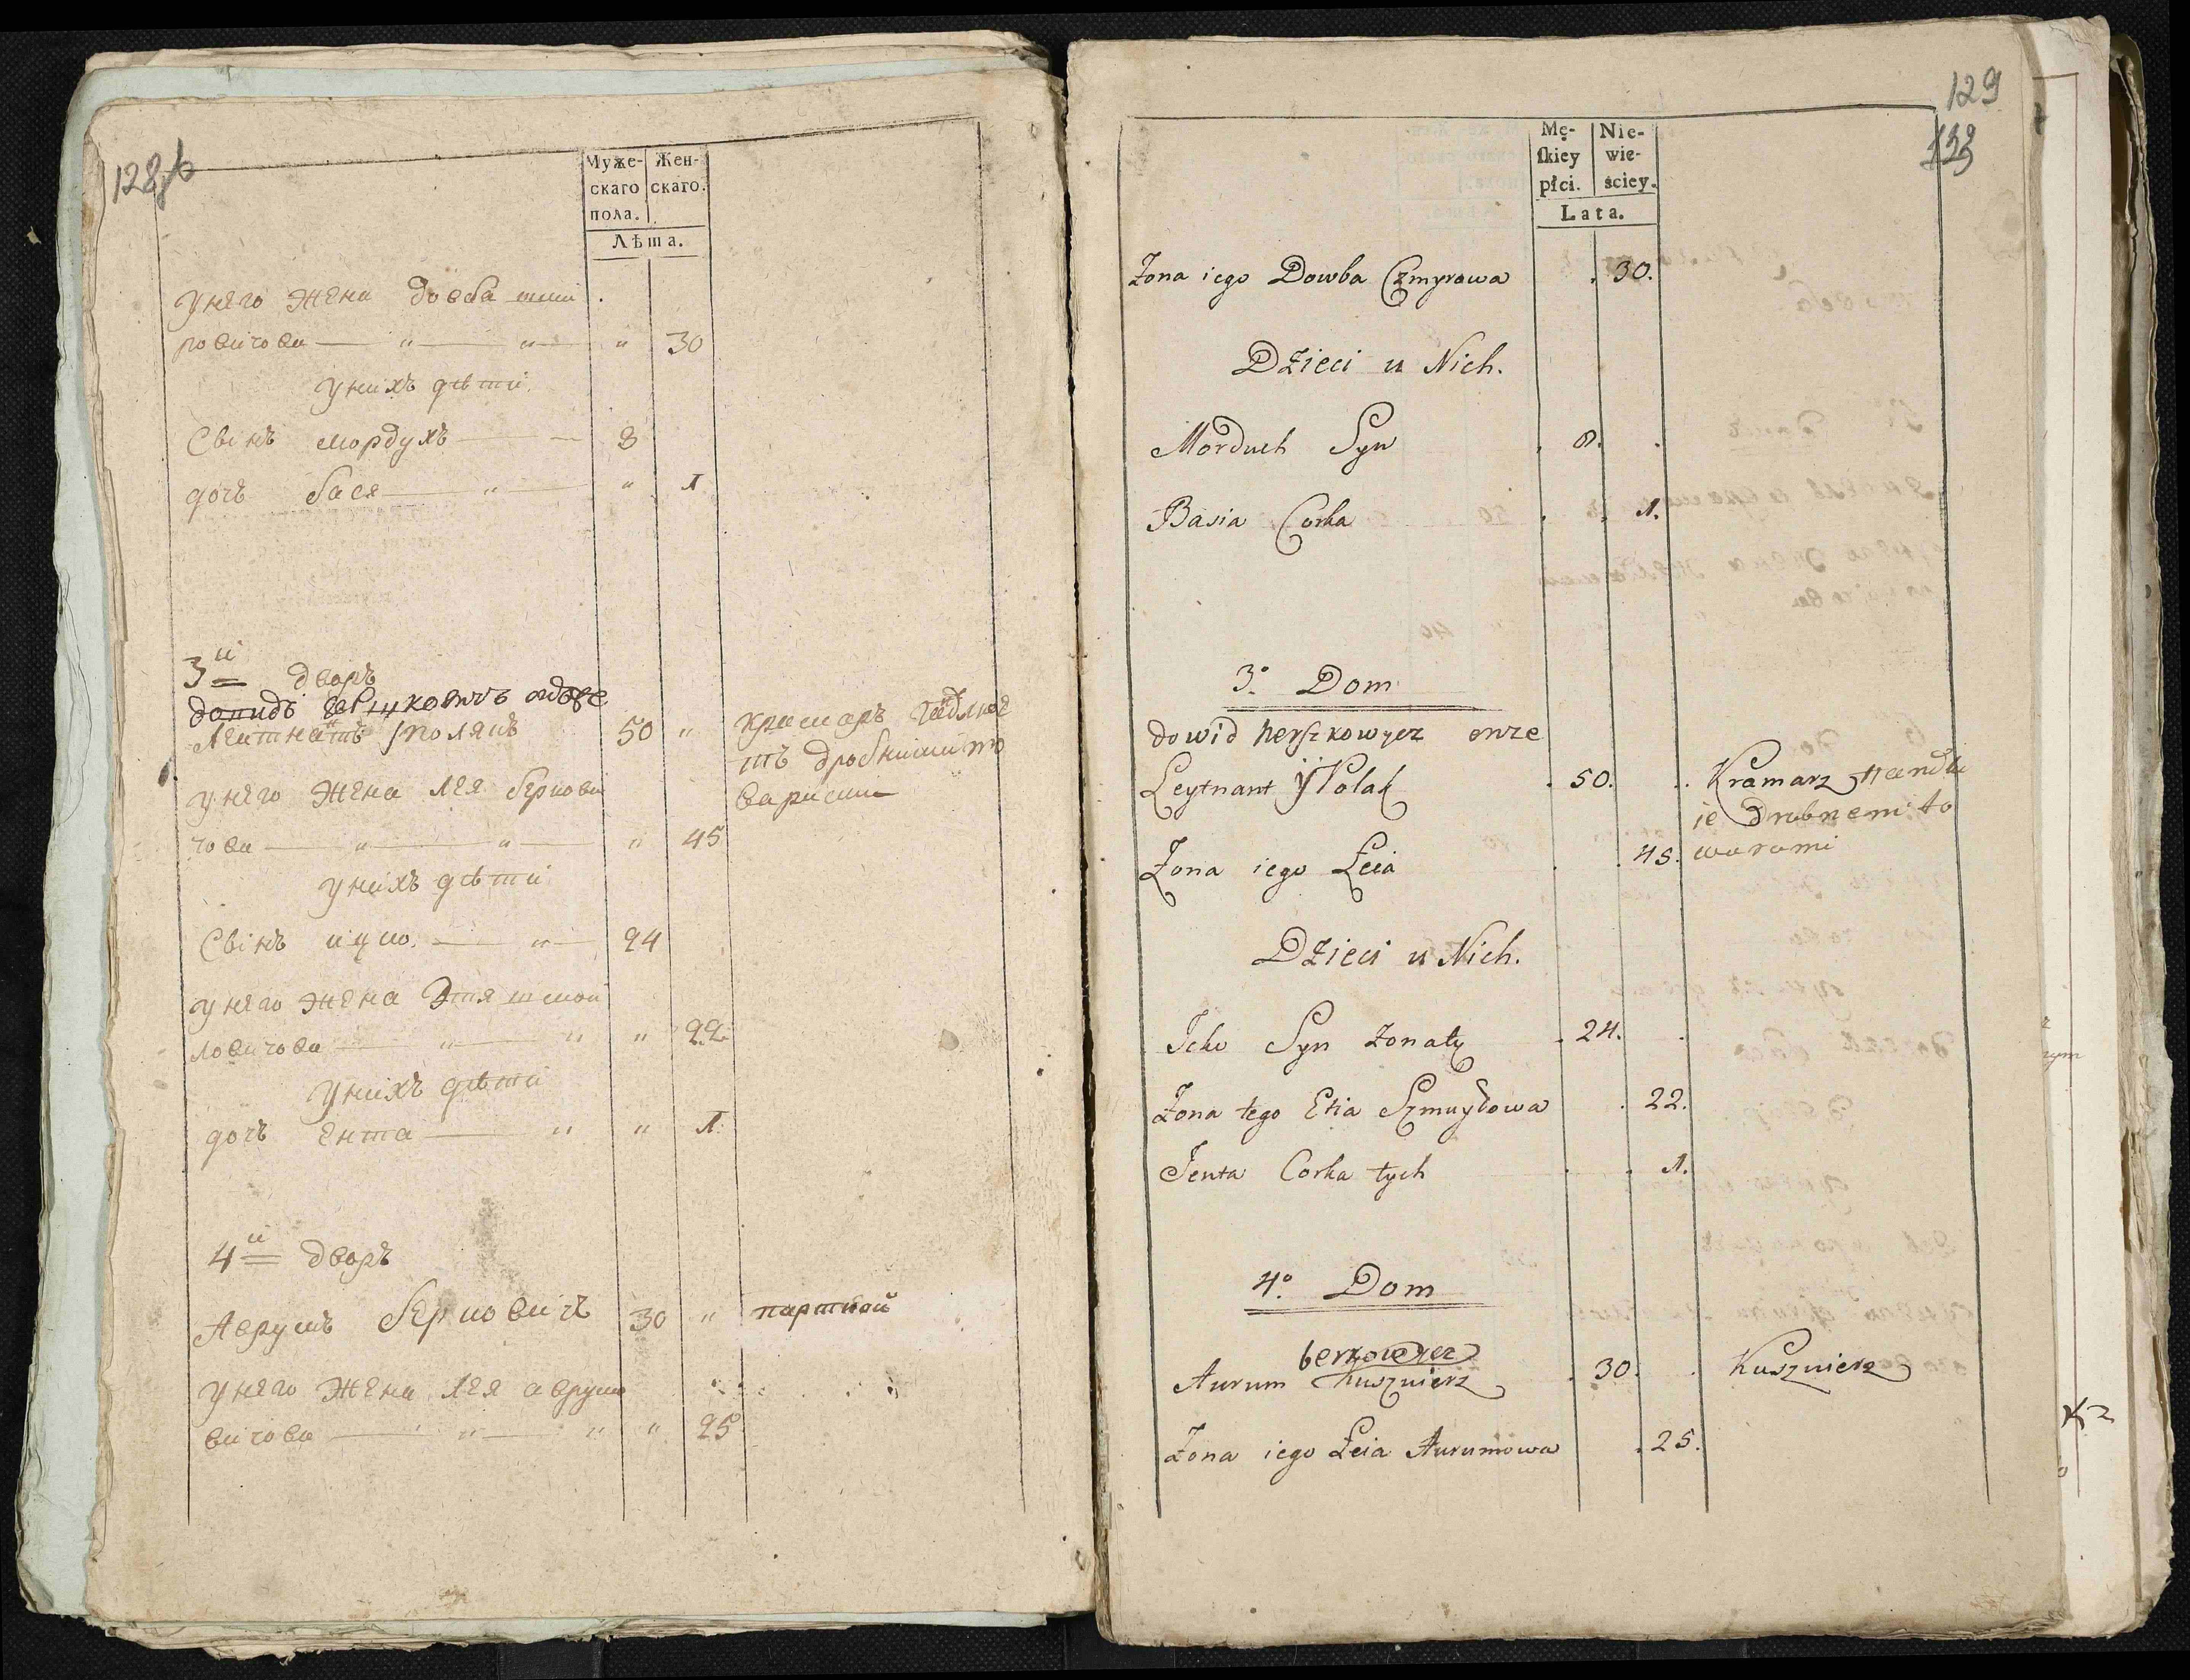 128 b
Муже-
скаго
пола.
Жен-
скаго.
Лѣта.
У него жена довба шми
ровичова — " — " — " 30
У нихъ дѣти.
Сынъ мордухъ — — 8
дочь бася — " — " 1
3й дворъ
давидъ гершковичъ онзе
Лейтнантъ Полякъ 50 "
крамаръ
дробними то
варами
У него жена лея беркови
чова — " — " — " 45
У нихъ дѣти
Сынъ ицко. — " — 24
У него жена Этя шмой
ловичова — " — " " 22
У нихъ дѣти
дочь Ента — " " 1.
4й дворъ
Аврумъ берковичъ 30 " портной
У него жена лея аврумо
вичова — " — " " 25
129
Mę-
skiey
płci.
Nie-
wie-
ściey.
Lata.
Zona iego Dowba Szmyrowa . 30.
Dzieci u Nich.
Morduch Syn . 8. .
Basia Corka . . 1.
3.o Dom
dowid herszkowycz onze
Leytnant y Polak . 50. . Kramarz Handlu
ie drubnemi to
Zona iego Leia . . 45. warami
Dzieci u Nich.
Icko Syn Zonaty . 24. .
Zona tego Etia Szmuylowa . 22.
Jenta Corka tych . . 1.
4.o Dom
berkowycz
Aurum Kusznierz . 30. . Kusznierz
Zona iego Leia Aurumowa . 25.